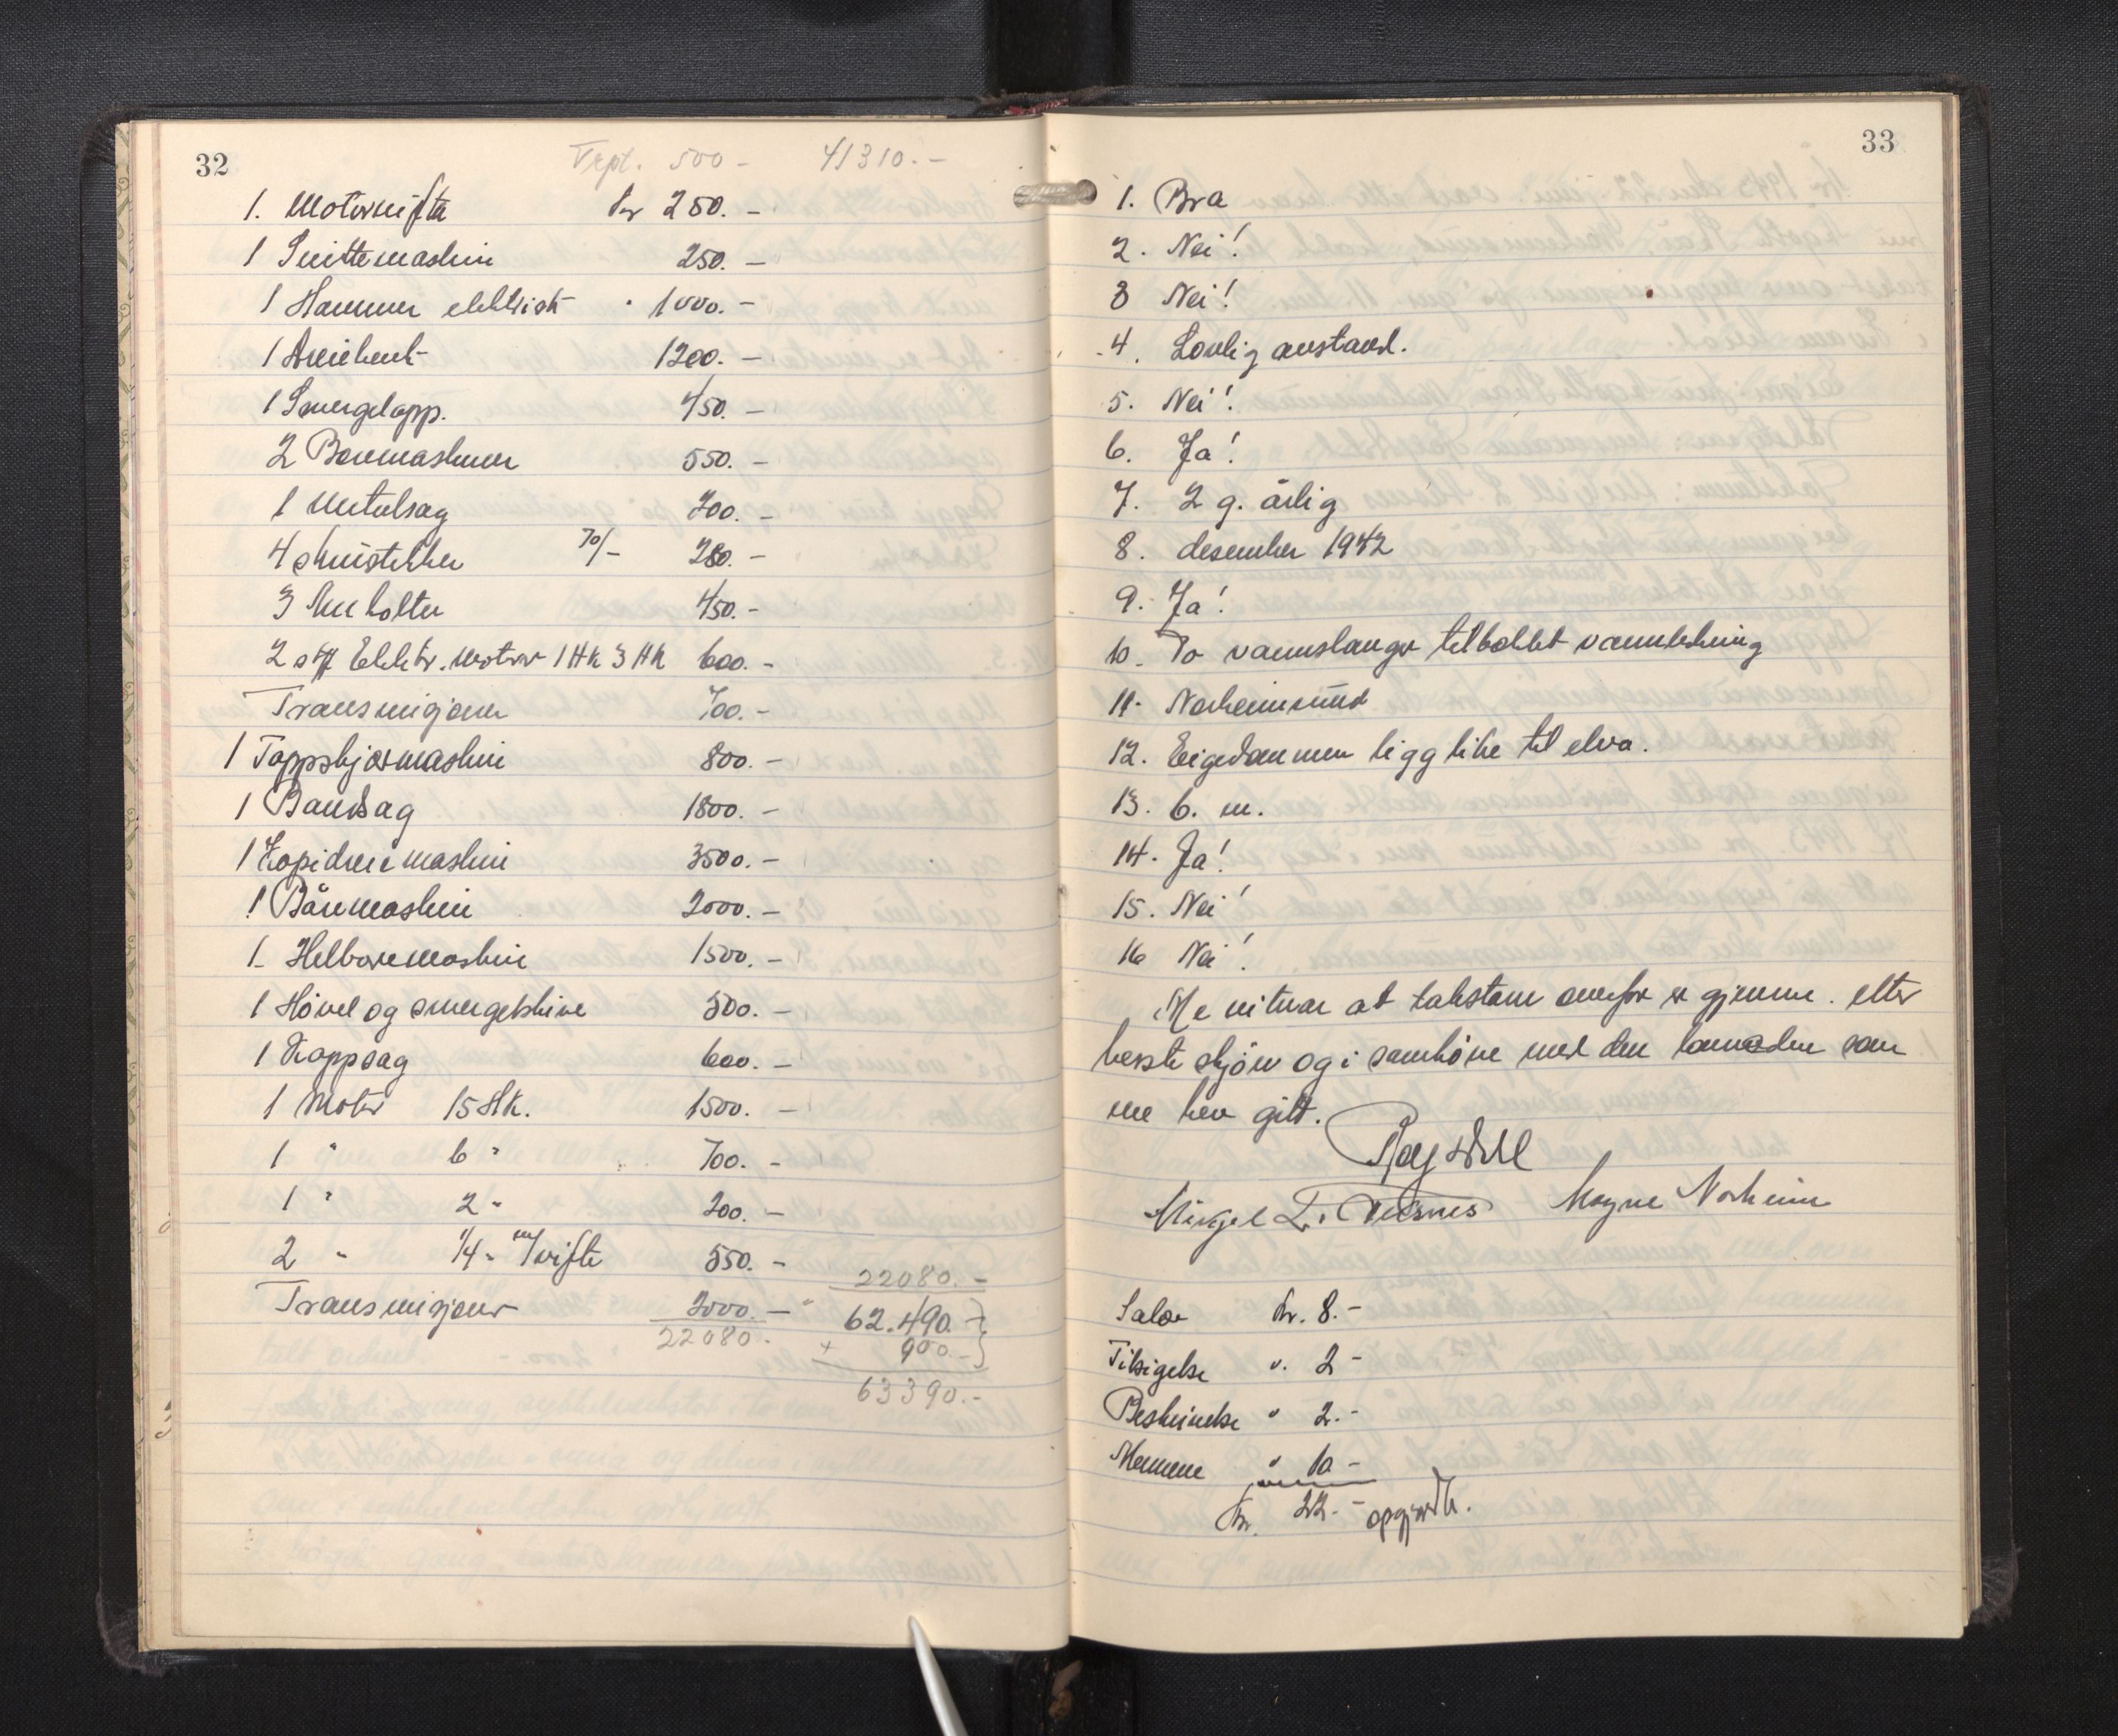 32
Trpt. 500 - 41310.-
1. Motorvifta kr 250. -
1 Snittemaskin 250. -
1 Hammer elektrisk " 1000. -
1 Dreiebenk 1200. -
1 Smergelapp. 450. -
2 Boremaskiner 550. -
1 Metalsag 200. -
4 skruestikker 70/- 280. -
3 450. -
2 stk Elektr. Motorer 1 Hk 3 Hk 600. -
Transmisjoner 700. -
1 Tappskjærmaskin 800. -
1 Bandsag 1800. -
1 Kopidreiemaskin 3500. -
1 Båremaskin 2000. -
1 Helboremaskin 1500. -
1 Hövel og smergelskive 500. -
1 Kappsag 600. -
1 Motor 15 Hk. 1500. -
1 " 6 " 700. -
1 " 2 " 200. -
2 " 1/4 " m/vifte 550. -
22080. -
Transmisjoner 2000. -
22080. -
62.490. -
+ 900. -
63390.-
33
1. Bra
2. Nei!
3 Nei!
4. Lovlig avstand.
5. Nei!
6. Ja!
7. 2 g. årlig
8. desember 1942
9. Ja!
10. To vannslanger tilkoblet vannledning
11. Norheimsund
12. Eigedommen ligg like til elva.
13. 6. m.
14. Ja!
15. Nei!
16 Nei!
Me vitnar at takstane ovanfor er gjenne. etter
beste skjön og i samhöve med den lovnaden som
me hev gitt.
Mikjel L. Magne Norheim
Salær kr. 8.-
Tilsigelse " 2 -
Beskrivelse " 2.-
Mennene " 10 -
Kr. 22.- opgjordt.